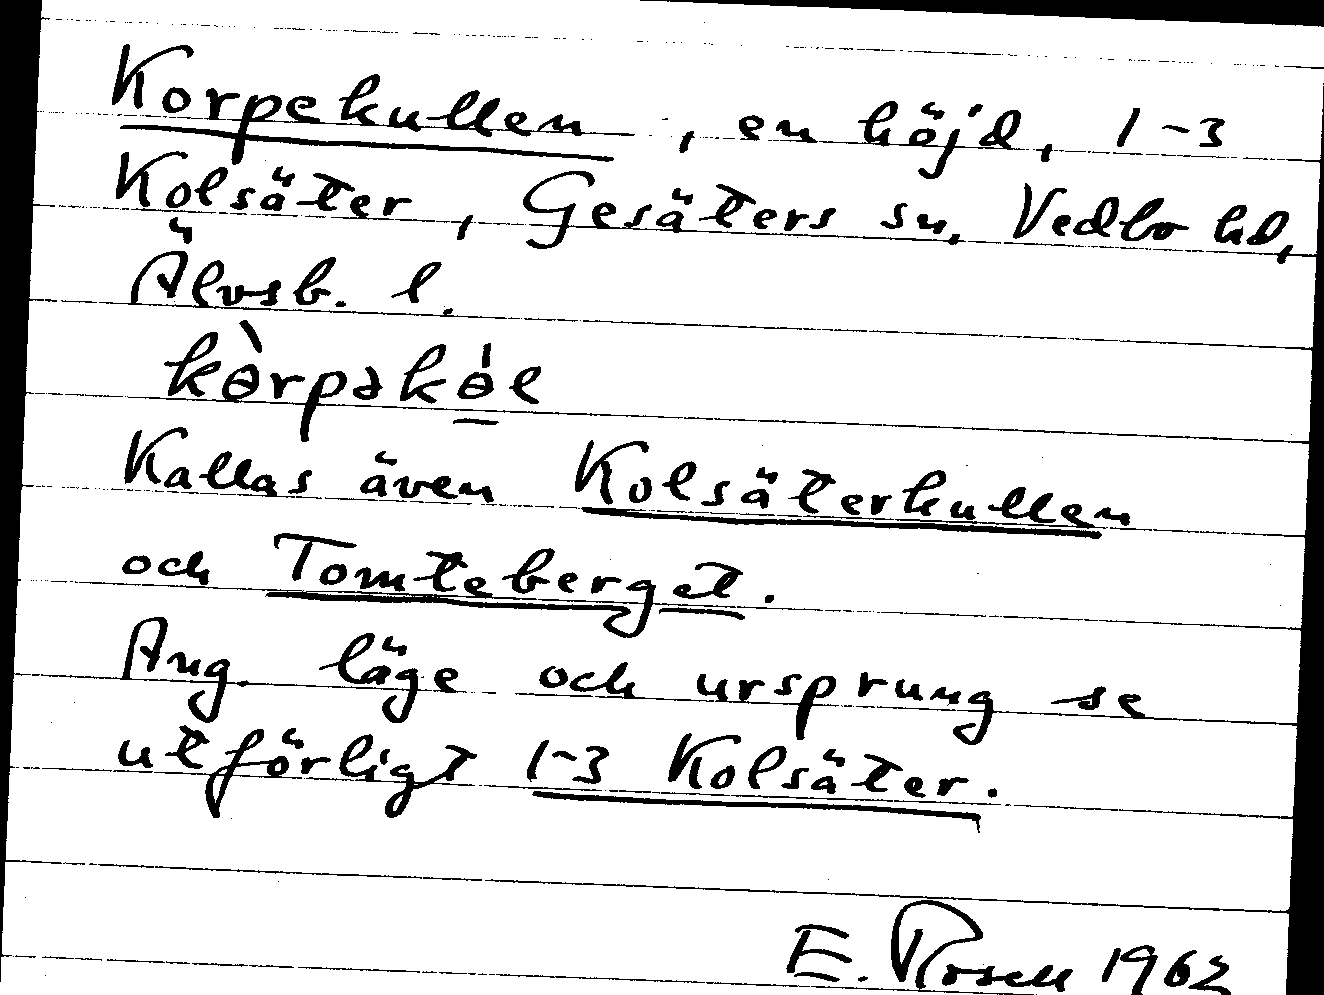 Korpekullen, en höjd, 1-3
Kolsäter, Gesäters sn, Vedbo hd,
Älvsb. l.
kɵ̀rpəkɵ̱́l
Kallas även Kolsäterkullen
och Tomteberget.
Ang. läge och ursprung se
utförligt 1-3 Kolsäter.
E. Rosell 1962